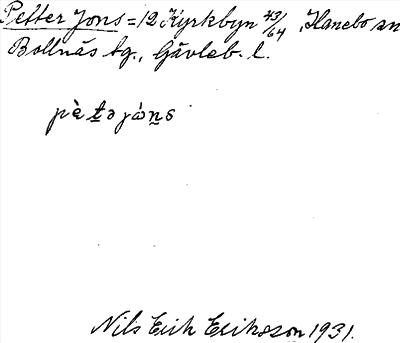 Petter Jons = 12 Kyrkbyn 43/64, Hanebo sn
Bollnäs tg., Gävleb. l.
pὲṯə jóṉs
Nils Erik Eriksson 1931.